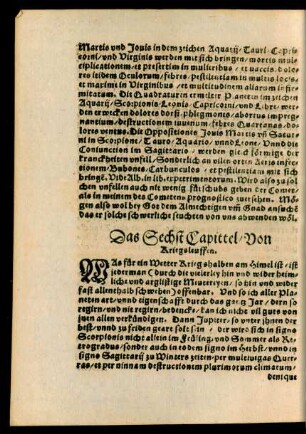 Martis vnd Jouis in dem zeichen Aquarij, Tauri, Capri-
corni, vnd Virginis werden mit sich bringen, mortis mul-
tiplicationem, et presertim in mulieribus, et vaccis, dolo-
res itidem Oculorum, febres, pestilentiam in multis locis,
et maxime in Virginibus, et multitudinem aliarum in fir-
mitatum. Die Quadraturen ermelter Planeten im zeichen
Aquarij, Scorpionis, Leonis, Capricorni, vnd Libre, wer-
den erwecken dolores dorsi, phlegmonis, abortus impreg-
nantium, destructionem iuuenum, febres Quartanas, do-
lores ventris. Die Oppositionen Jouis Martis vñ Satur-
ni in Scorpione, Tauro, Aquario, vnnd Leone, Vnnd die
Coniunction im Sagitario, werden gleich förmige der
kranckheiten vnfall, Sonderlich an vilen orten Aeris infe-
ctionem, Bubones, Carbunculos, et pestilentiam mit sich
bringē, Vide Alb. in lib. experimentorum, Wird also zu solchen
vnfellen auch nit wenig fürschub geben der Comet,
als in meinem des Cometen prognostico zuersehen. Mögen
also wol bey Got dem Almechtigen vmb Gnad ansuchē
das er solche schwerliche seuchen von vns abwenden wöl.
Das Sechst Capittel, Von
Kriegsleuffen.
WAs für ein Wetter Kriegs halben am Himel ist, ist
jederman (durch die vielerley hin vnd wider heim-
liche vnd arglistige Meuterey, so hin vnd wider
fast allenthalb schweben) offenbar. Und so ich aller Pla-
neten art, vnd eigenschafft durch das gantz Jar, denn so
regirn, vnd nit regirn, bedencke, kan ich nicht vil guts von
jnen allen verkündigen. Dann Jupiter, so vnter jhnen der
best, vnnd zu friden geart solt sein, der wird sich in signo
Scorpionis nicht allein im Früling, vnd Sommer als Re-
trogradus, sonder auch in eodem signo im Herbst, vnnd in
signo Sagittarij zu Winters zeiten, per multiuagas Que-
ras, et per ninnam destructionem plurimorum climatum,
denique